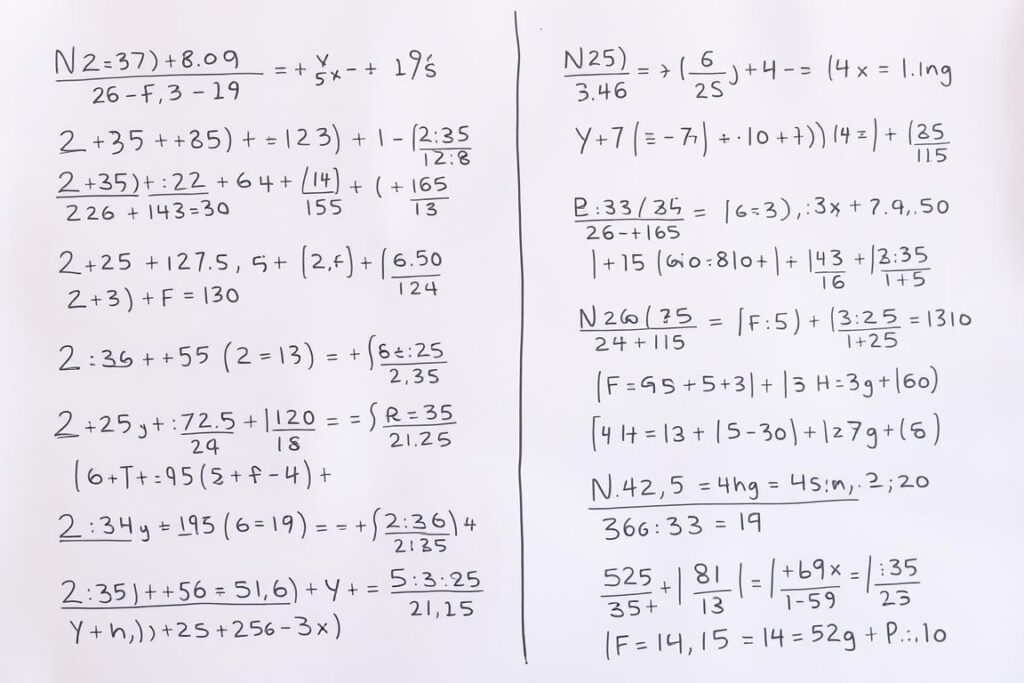 N2=37)+8.09 / 26-F,3-19 = + y/5x - + 19's
2+35 ++35) + = 123) + 1 - (2:35 / 12:8
2+35)+:22 / 226 + 143=30 + 64 + (14) / 155 + ( + 165 / 13
2+25 +127.5, 5+ (2,f) + (6.50 / 124
2+3) + F = 130
2:36 ++55 (2=13) = + ∫6t:25 / 2,35
2+25y+:72.5 / 29 + |120 / 18 = = ∫R=35 / 21.25
(6+T+:95(5+f-4)+
2:34y = 195 (6=19) = = + ∫2:36)4 / 2135
2:35)++56=51,6)+Y+ = 5:3:25 / 21,15
Y+h,))+25+256-3x)
N25) / 3.46 = + (6 / 25) +4 -= (4x = 1.ing
Y+7(=-7) + .10+7))(4=) + (35 / 115
P:33/35 / 26-+165 = (6=3),:3x+7.9,.50
|+15 (Gio:810+|+|43 / 16 +|3:35 / 1+5
N26(75 / 24+115 = ⌈F:5)+(3:25 / 1+25 = 1310
(F=95+5+3|+|3H=3g+|60)
(4H=13+15-30)+|27g+(8)
N.42,5 = 4hg = 4s:n,.2;20
366:33 = 19
525 / 35+ + | 81 / 13 | = |+69x / 1-59 = |:35 / 23
(F=14,15=14=52g+P.:.10